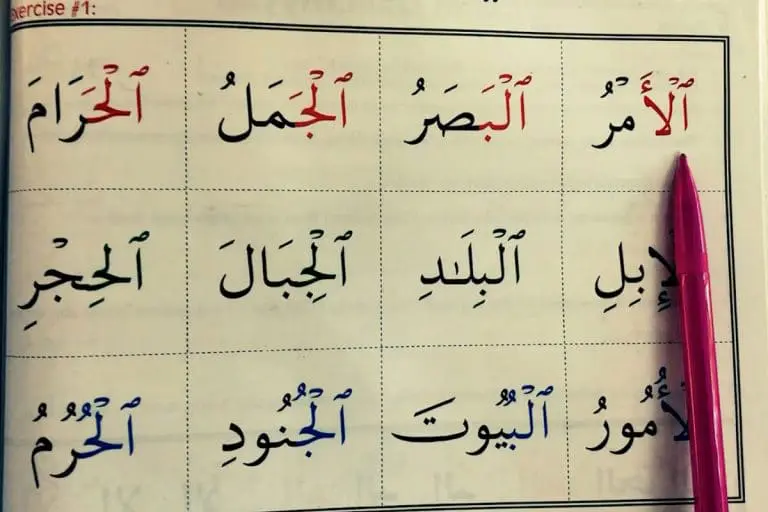 exercise #1:
ٱلْأَمْرُ ٱلْبَصَرُ ٱلْجَمَلُ ٱلْحَرَامَ
ٱلْإِبِلِ ٱلْبِلَـٰدِ ٱلْجِبَالَ ٱلْحِجْرِ
ٱلْأُمُورُ ٱلْبُيُوتَ ٱلْجُنُودِ ٱلْحُرُمُ